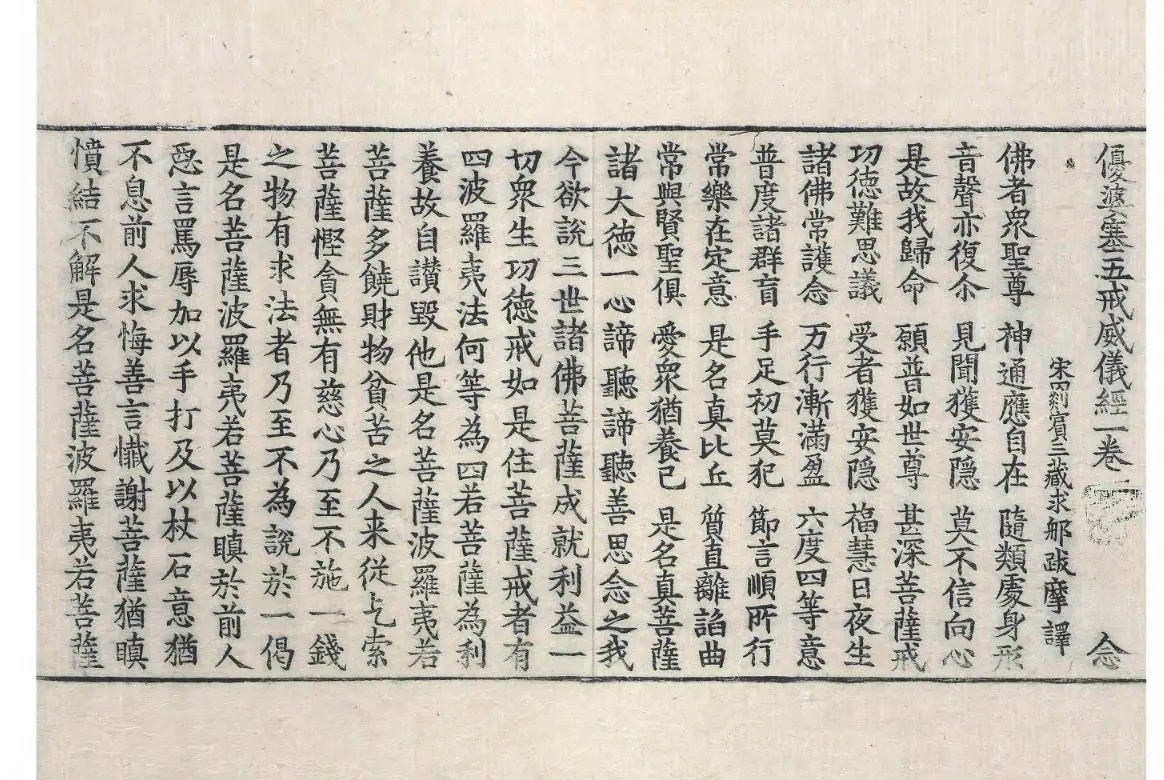 優婆塞五戒威儀經一卷 念
宋罽賓三藏求那跋摩譯
佛者衆聖尊 神通應自在 隨類處身形
音聲亦復尒 見聞獲安隱 莫不信向心
是故我歸命 願普如世尊 甚深菩薩戒
功德難思議 受者獲安隱 福慧日夜生
諸佛常護念 万行漸滿盈 六度四等意
普度諸群盲 手足初莫犯 節言順所行
常樂在定意 是名真比丘 質直離諂曲
常與賢聖俱 愛衆猶養己 是名真菩薩
諸大德一心諦聽諦聽善思念之我
今欲說三世諸佛菩薩成就利益一
切衆生功德戒如是住菩薩戒者有
四波羅夷法何等為四若菩薩為利
養故自讃毀他是名菩薩波羅夷若
菩薩多饒財物貧苦之人来從乞索
菩薩慳貪無有慈心乃至不施一錢
之物有求法者乃至不為說於一偈
是名菩薩波羅夷若菩薩瞋於前人
惡言罵辱加以手打及以杖石意猶
不息前人求悔善言懺謝菩薩猶瞋
憤結不解是名菩薩波羅夷若菩薩